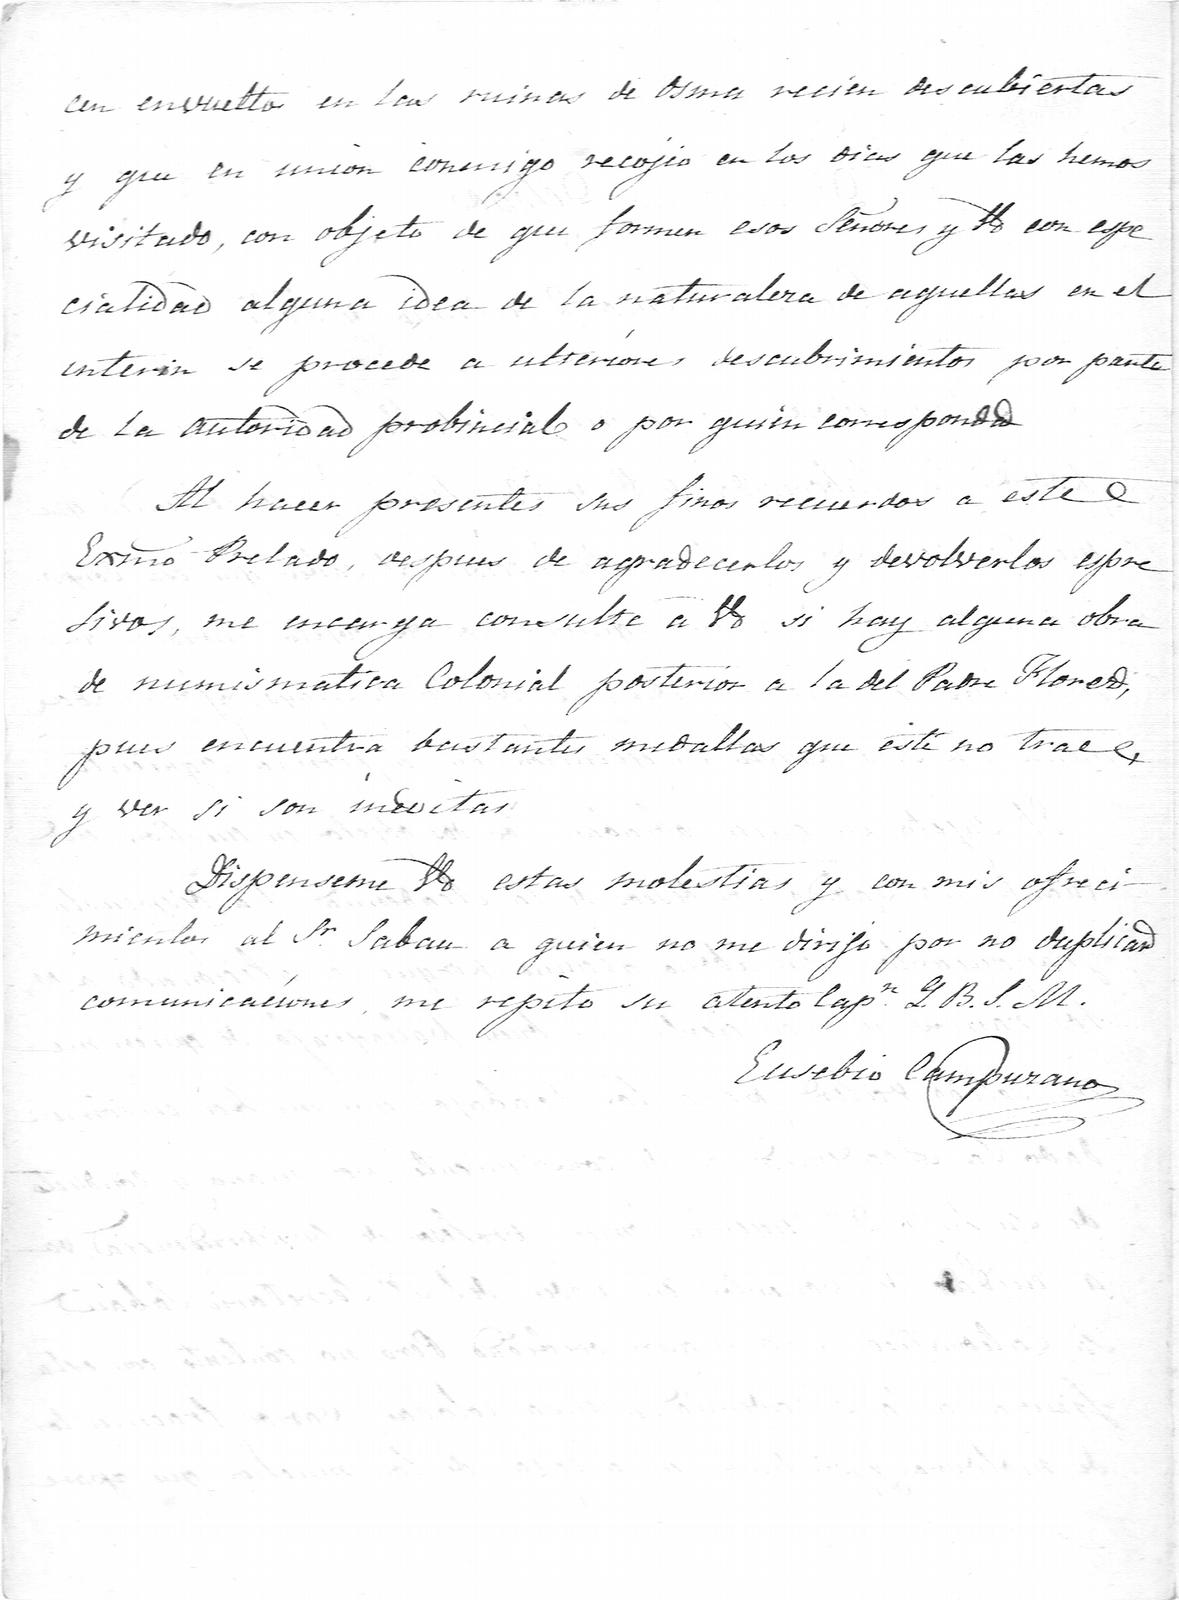 cen envuelto en las ruinas de Osma recien descubiertas
y que en union conmigo recojio en los dias que las hemos
visitado, con objeto de que formen esos Señores y Vd con espe
cialidad alguna idea de la naturaleza de aquellas en el
interin se procede a ulteriores descubrimientos por parte
de la autoridad probincial o por quien corresponda
Al hacer presentes sus finos recuerdos a este
Exmo Prelado, despues de agradecerlos y devolverlos espre
sivos, me encarga consulte a Vd si hay alguna obra
de numismatica Colonial posterior a la del Padre Florez,
pues encuentra bastantes medallas que este no trae,
y ver si son ineditas
Dispenseme Vd estas molestias y con mis ofreci-
mientos al Sr. Sabau a quien no me dirijo por no duplicar
comunicaciones, me repito su atento Capn. Q. B. S. M.
Eusebio Campuzano